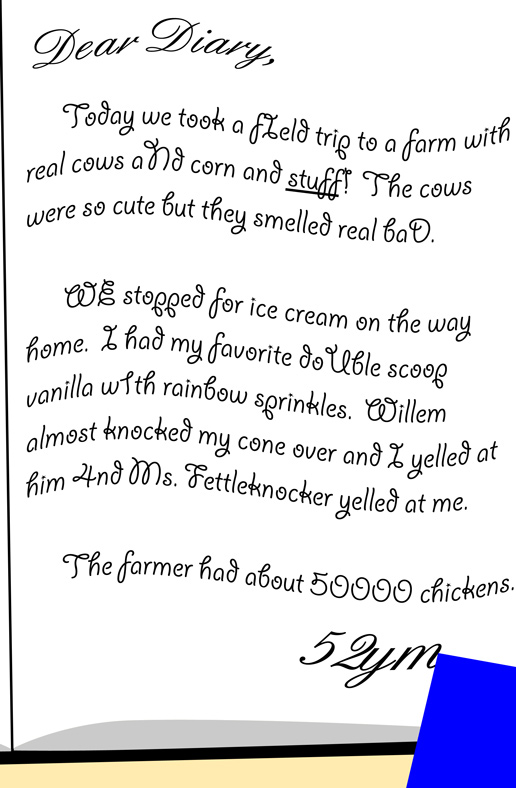 Dear Diary,
Today we took a fIeld trip to a farm with
real cows aNd corn and stuff! The cows
were so cute but they smelled real baD.
WE stopped for ice cream on the way
home. I had my favorite doUble scoop
vanilla w1th rainbow sprinkles. Willem
almost knocked my cone over and I yelled at
him 4nd Ms. Fettleknocker yelled at me.
The farmer had about 50000 chickens.
52ym